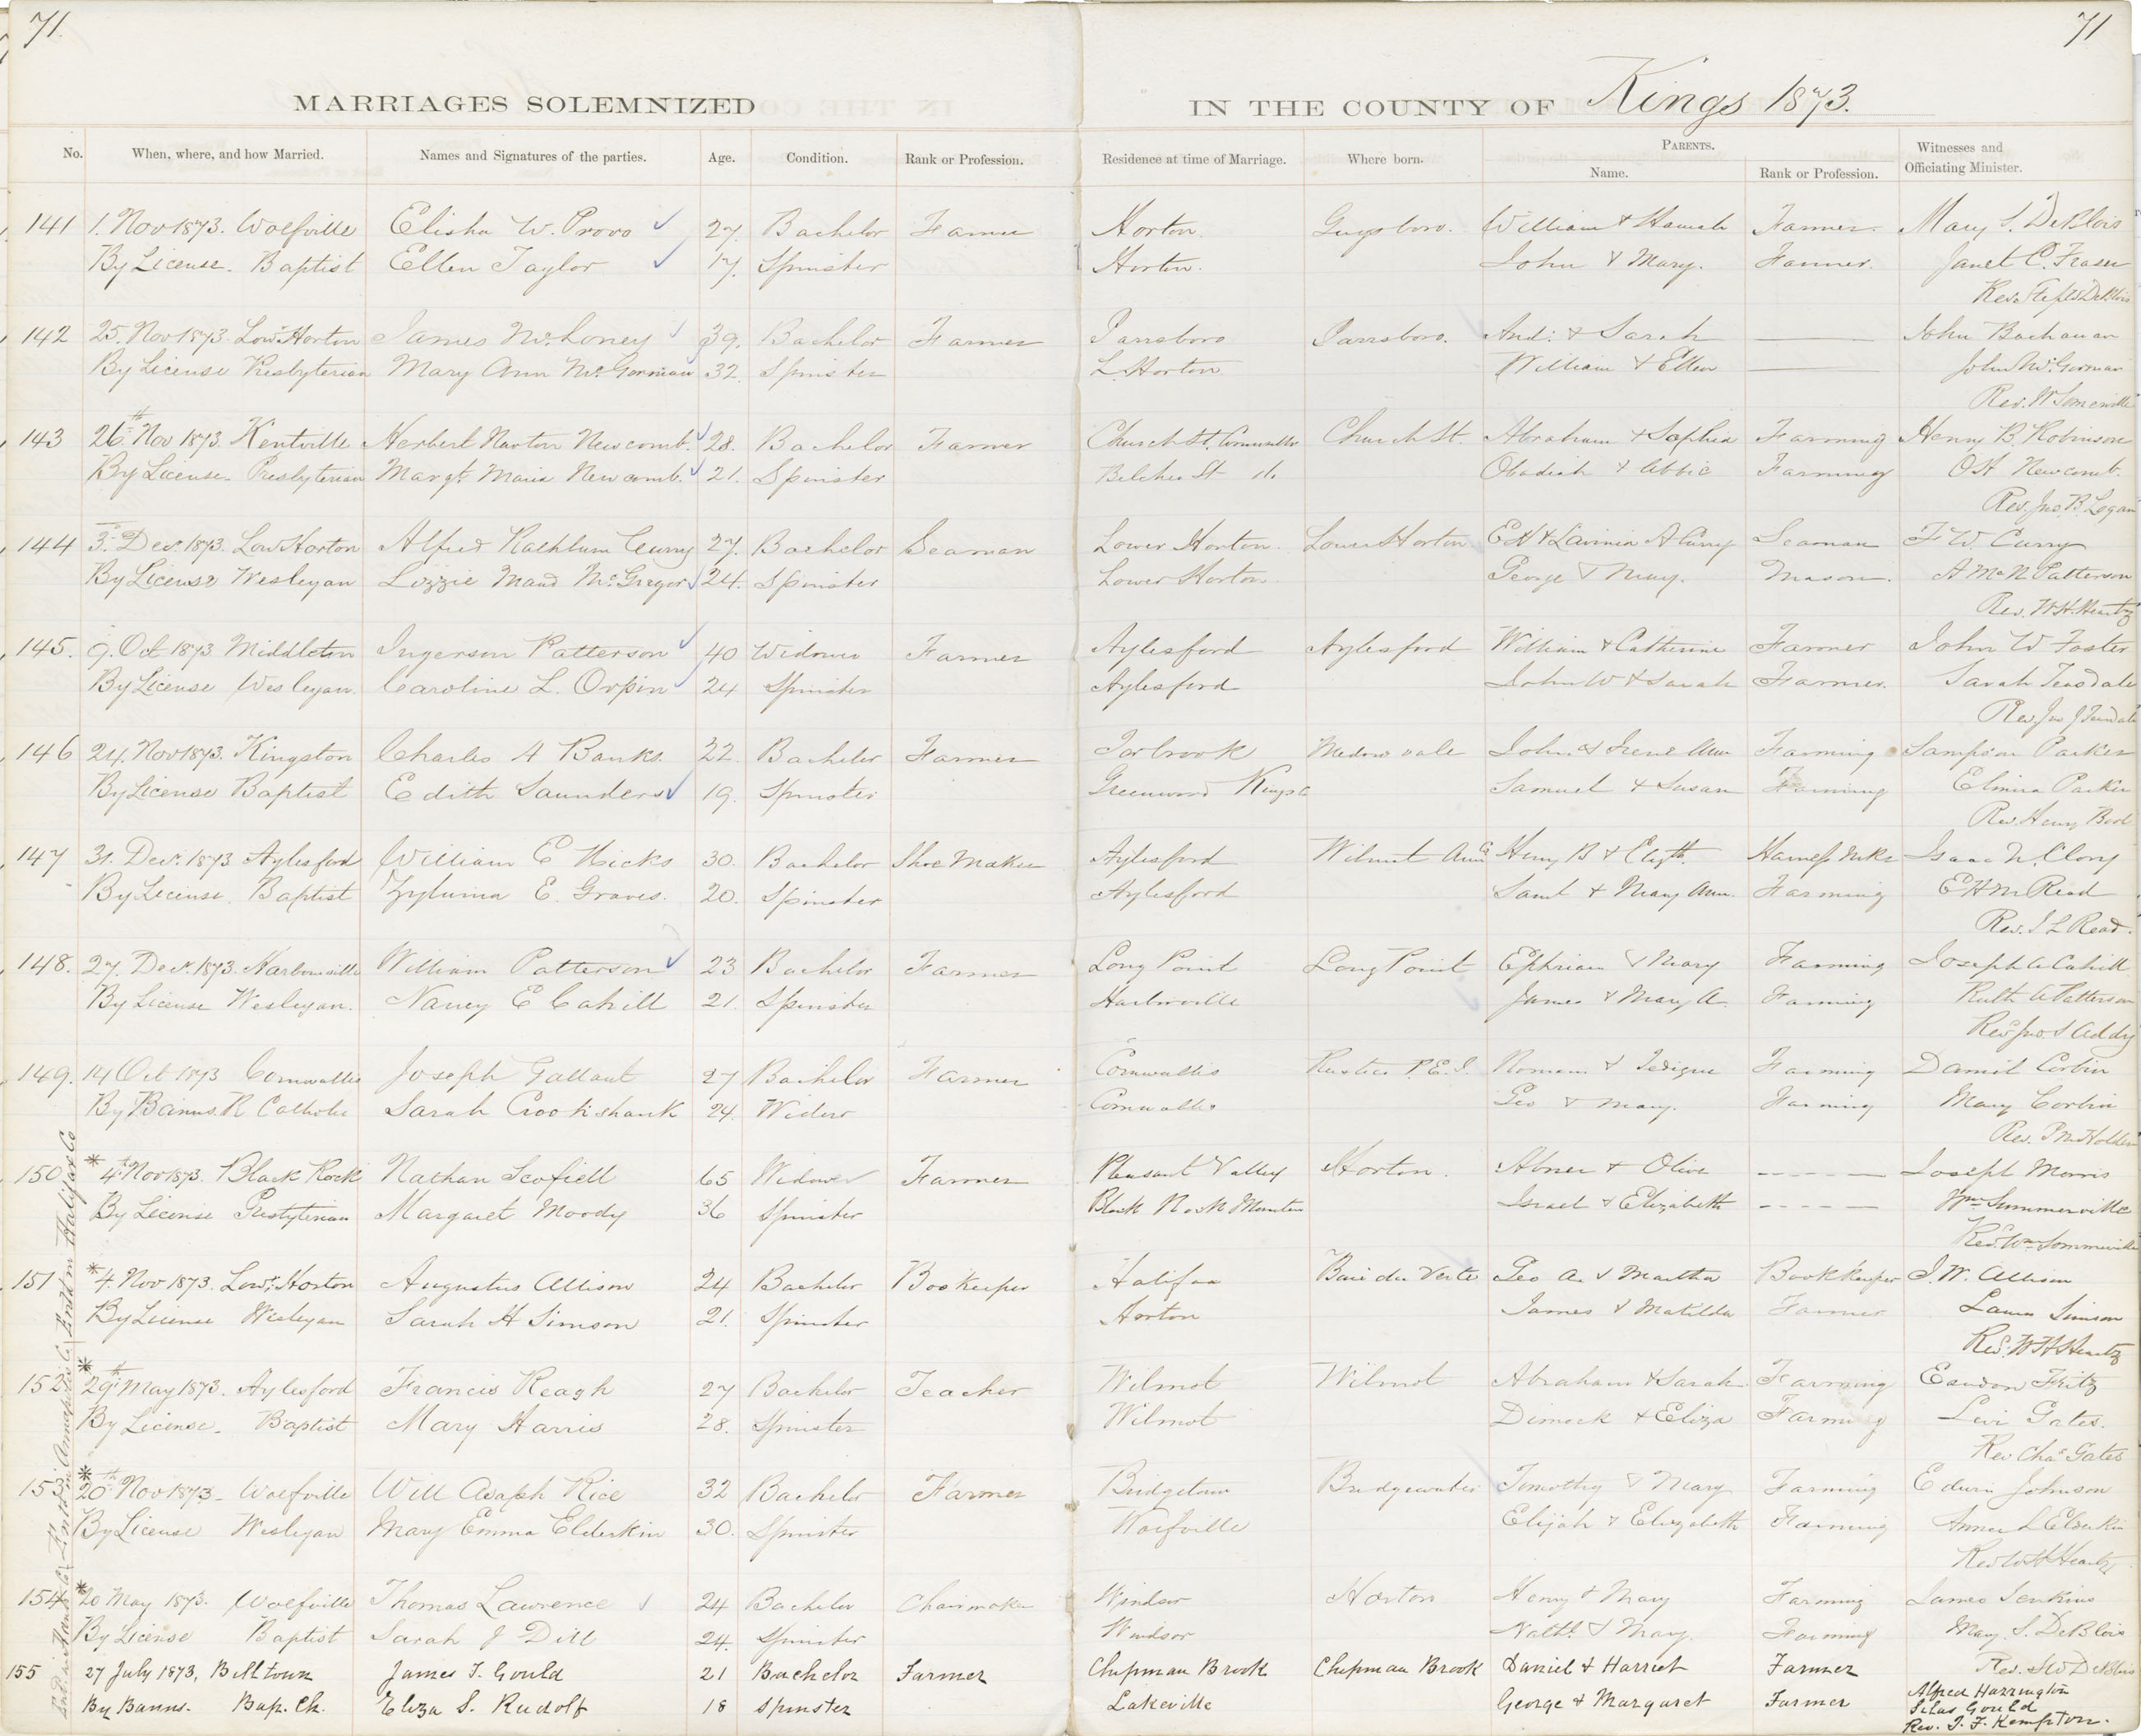 71.
71
MARRIAGES SOLEMNIZED IN THE COUNTY OF Kings 1873.
No. When, where, and how Married. Names and Signatures of the parties. Age. Condition. Rank or Profession. Residence at time of Marriage. Where born. PARENTS. Name. Rank or Profession. Witnesses and Officiating Minister.
141 1. Nov 1873. Wolfville Elisha W. Provo 27. Bachelor Farmer Horton. Guysboro. William & Hannah Farmer. Mary S. DeBlois
By License. Baptist Ellen Taylor 17. Spinster Horton. John & Mary. Farmer. Janet C. Fraser
Rev. DeBlois
142 25. Nov 1873. Low. Horton James 39. Bachelor Farmer Parrsboro Parrsboro. And: & Sarah John Buchanan
By License Presbyterian Mary Ann McGorman 32. Spinster L. Horton. William & Ellen John McGorman
Rev. W Somerville
143 26th Nov 1873. Kentville Herbert Newcomb. 28. Bachelor Farmer Church St. Cornwallis Church St. Abraham & Sophia Farming Henry B. Robinson
By License. Presbyterian Margt. Maria Newcomb. 21. Spinster Belcher St do Obadiah & Abbie Farming O H Newcomb.
Rev. Jno. B. Logan
144 3. Dec. 1873. Low Horton Alfred Rathburn Curry 27. Bachelor Seaman Lower Horton. Lower Horton E H & Lavinia A Curry Seaman F W Curry
By License Wesleyan Lizzie Maud McGregor 24. Spinster Lower Horton George & Mary. Mason. A McN Patterson
Rev. W H. Heartz
145. 9. Oct 1873. Middleton Ingerson Patterson 40 Widower Farmer Aylesford Aylesford William & Catherine Farmer John W Foster
By License Wesleyan. Caroline L. Orpin 24 Spinster Aylesford John W & Sarah Farmer. Sarah Teasdale
Rev. Jno J Teasdale
146 24. Nov 1873. Kingston Charles A Banks. 22. Bachelor Farmer Torbrook Meadowvale John & Irene Ann Farming Sampson Parker
By License Baptist Edith Saunders 19. Spinster Greenwood Kings C Samuel & Susan Farming Elmira Parker
Rev. Henry
147 31. Dec. 1873 Aylesford William E Hicks 30. Bachelor Shoe Maker Aylesford Wilmot Henry B & Elizth. Harness Mkr Isaac
By License. Baptist E. Graves. 20. Spinster Aylesford Saml & Mary Ann. Farming E H M Read
Rev. J L Read.
148. 27. Dec. 1873. Harborville William Patterson 23 Bachelor Farmer Long Point Long Point Ephriam & Mary Farming Joseph A Cahill
By License Wesleyan. Nancy E Cahill 21. Spinster Harborville James & Mary A. Farming Ruth A Patterson
Rev. Jno S Addy
149. 14 Oct 1873 Cornwallis Joseph Gallant 27 Bachelor Farmer Cornwallis Rustico P.E.I. Farming Daniel Corbin
By Banns. R Catholic Sarah Crookshank 24. Widow Cornwallis Geo & Mary. Farming Mary Corbin
Rev. P M Holden
150 * 4th Nov 1873. Black Rock Nathan Scofield 65 Widower Farmer Pleasant Valley Horton. Abner & Olive Joseph Morris
By License Presbyterian Margaret Moody 36 Spinster Black Rock Mountain Israel & Elizabeth Wm Summerville
Rev. Wm Sommerville
151 * 4. Nov 1873. Lowr. Horton Augustus Allison 24 Bachelor Bookeeper Halifax Baie du Verte Geo A. & Martha Bookkeeper J. W. Allison
By License Wesleyan Sarah H Simson 21. Spinster Horton James & Matilda Farmer Laura Simson
Rev. W H Heartz
152 * 29th May 1873. Aylesford Francis Reagh 27 Bachelor Teacher Wilmot Wilmot Abraham & Sarah Farming Fritz
By License. Baptist Mary Harris 28. Spinster Wilmot Dimock & Eliza Farming Levi Gates.
Rev Chas Gates
153 * 20th Nov 1873. Wolfville Will Asaph Rice 32 Bachelor Farmer Bridgetown Bridgewater Timothy & Mary Farming Edwin Johnson
By License Wesleyan Mary Emma Elderkin 30. Spinster Wolfville Elijah & Elizabeth Farming Annie L Elderkin
Rev W H Heartz
154 * 20 May 1873. Wolfville Thomas Lawrence 24 Bachelor Chairmaker Windsor Horton Henry & Mary Farming James Jenkins
By License Baptist Sarah J Dill 24. Spinster Windsor Nathl. & Mary. Farming Mary. S. DeBlois
Rev. DeBlois
155 27 July 1873, Billtown James T. Gould 21 Bachelor Farmer Chipman Brook Chipman Brook Daniel & Harriet Farmer Alfred Harrington
By Banns. Bap. Ch. Eliza S. Rudolf 18 Spinster Lakeville George & Margaret Farmer Silas Gould
Rev. J. F. Kempton.
Entd in Hants Co Entd in Annapolis Co Entd in Halifax Co